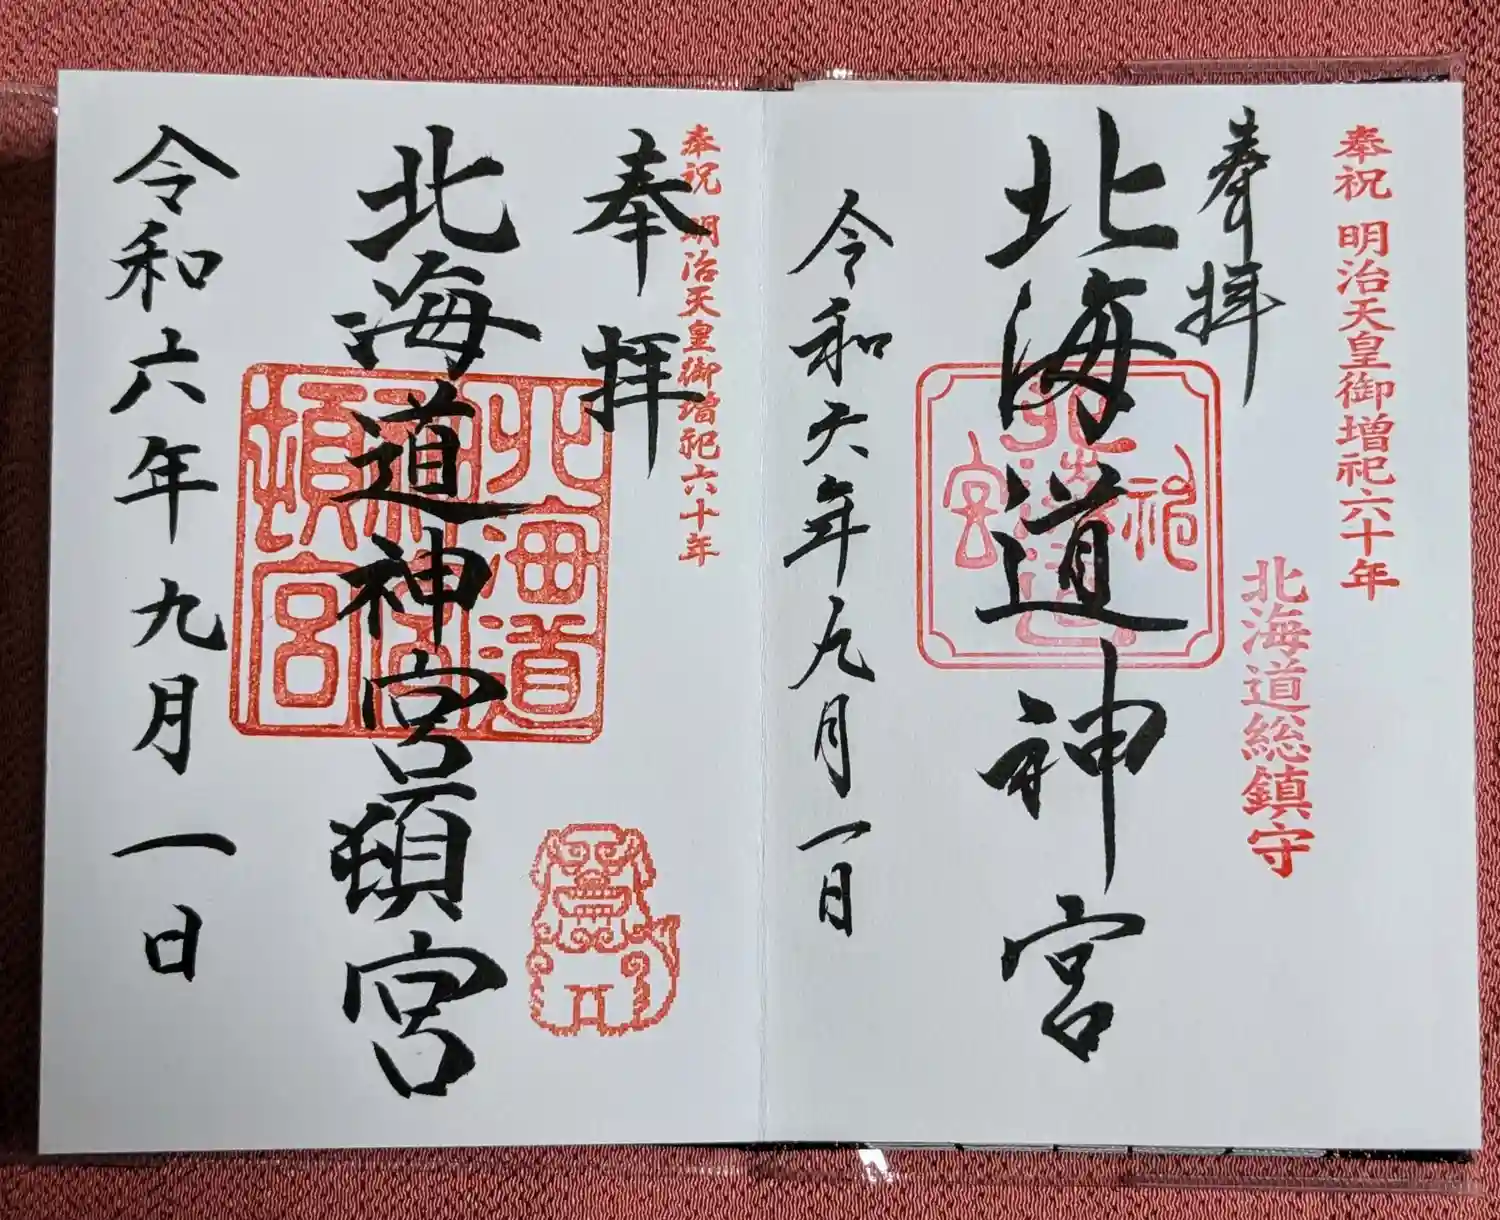 奉祝 明治天皇御増祀六十年
北海道総鎮守
奉拝
北海道神宮
令和六年九月一日
奉祝 明治天皇御増祀六十年
奉拝
北海道神宮頓宮
令和六年九月一日
北海道神宮頓宮